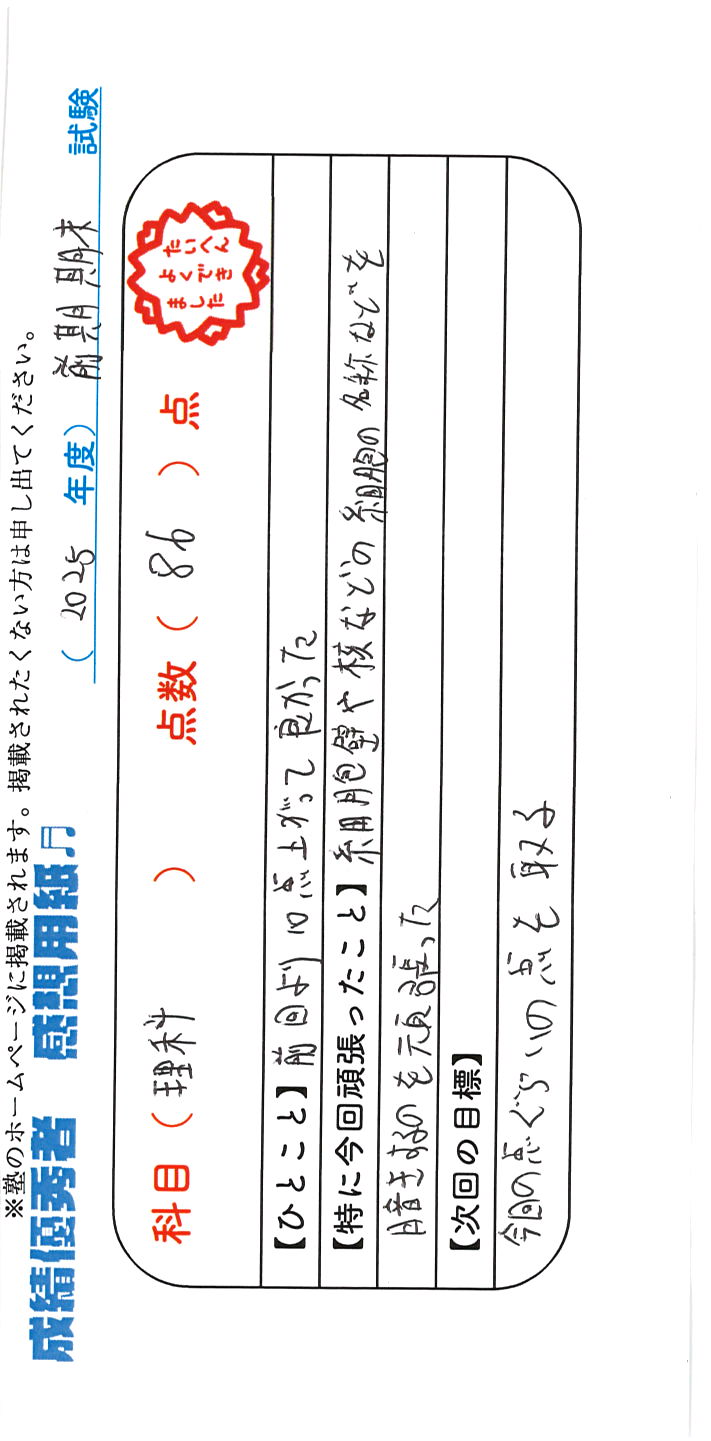 ※塾のホームページに掲載されます。掲載されたくない方は申し出てください。
成績優秀者 感想用紙♬ (2025 年度) 前期期末 試験
科目（理科）点数（86）点
たいへん
よくでき
ました
【ひとこと】前回より10点上がって良かった
【特に今回頑張ったこと】細胞壁や核などの細胞の名称などを
暗きするのを頑張った
【次回の目標】
今回の点ぐらいの点を取る